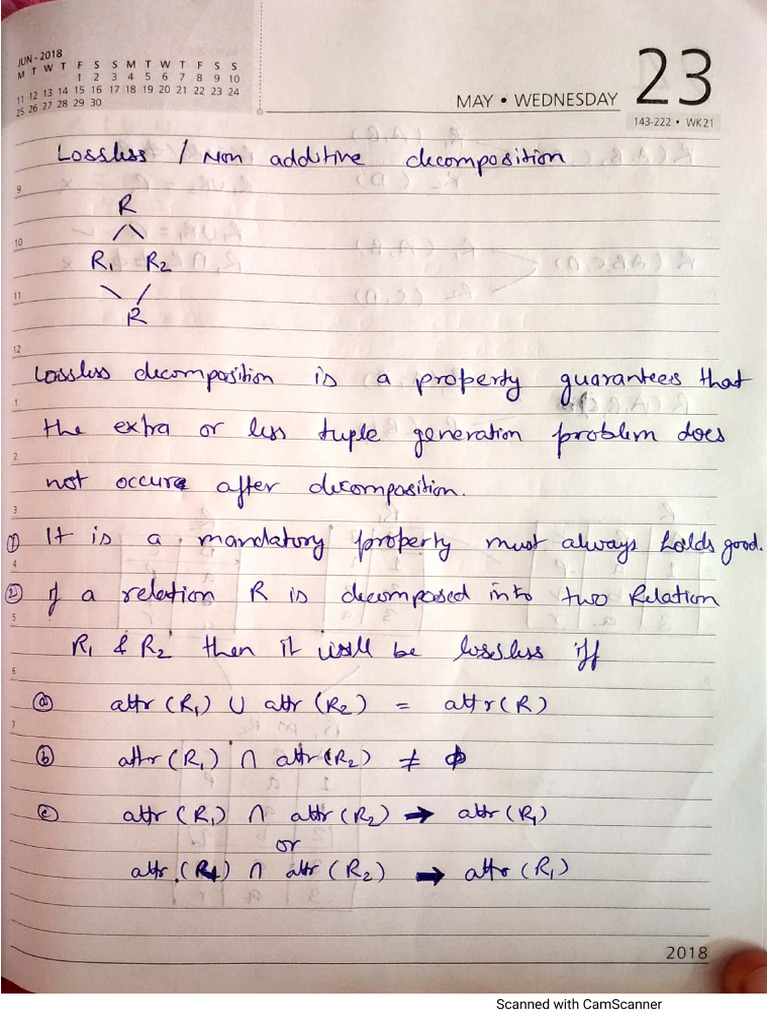 JUN - 2018
M T W T F S S M T W T F S S
1 2 3 4 5 6 7 8 9 10
11 12 13 14 15 16 17 18 19 20 21 22 23 24
25 26 27 28 29 30
MAY • WEDNESDAY 23
143-222 • WK21
Lossless / Non additive decomposition
9
R
10
R1 R2
11
R
12
Lossless decomposition is a property guarantees that
1
the extra or less tuple generation problem does
2
not occure after decomposition.
3
① It is a mandatory property must always holds good.
4
② If a relation R is decomposed into two Relation
5
R1 & R2 then it will be lossless iff
6
ⓐ attr (R1) ∪ attr (R2) = attr(R)
7
ⓑ attr (R1) ∩ attr (R2) ≠ ϕ
ⓒ attr (R1) ∩ attr (R2) → attr (R1)
or
attr (R1) ∩ attr (R2) → attr (R1)
2018
Scanned with CamScanner